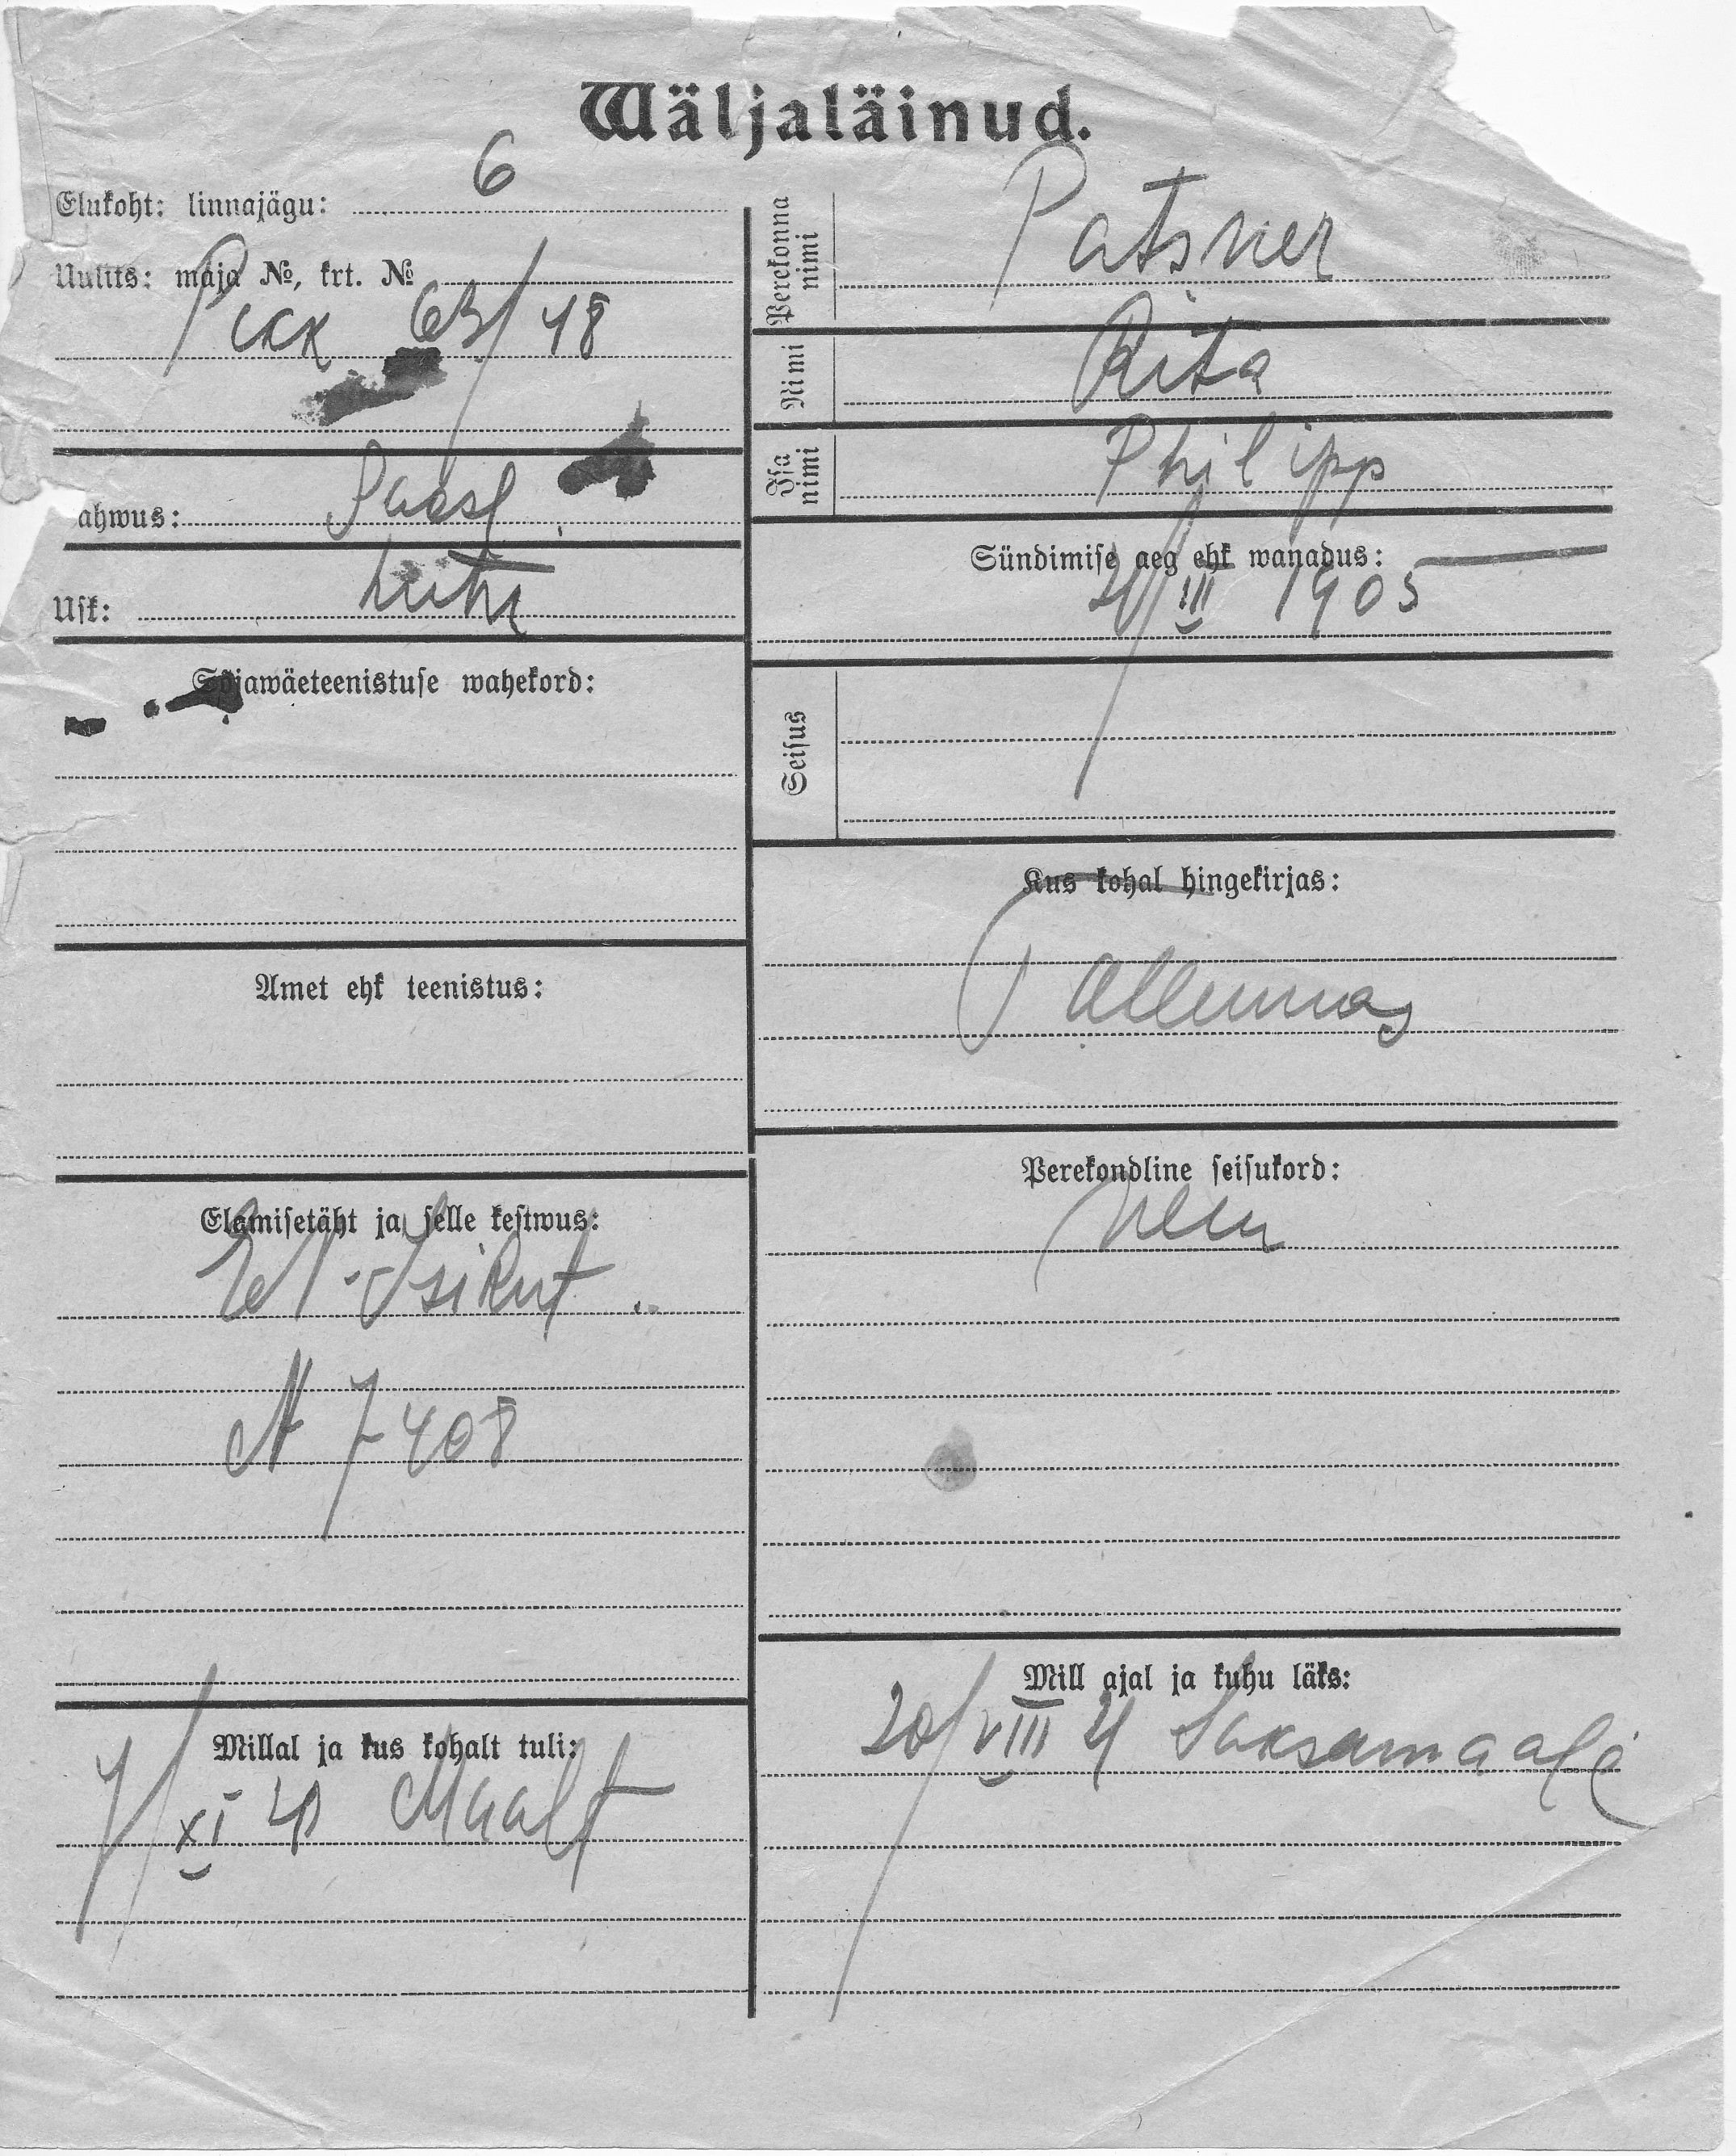 Wäljaläinud.
Elukoht: linnajägu: 6
Uulits: maja №, krt. №
Pikk 63/48
ahwus: Saksl.
Usk: Luth
Sõjawäeteenistuse wahekord:
Amet ehk teenistus:
Elamisetäht ja selle kestwus:
Isikut
N 7408
Millal ja kus kohalt tuli:
XI 20 Maalt
Perekonna nimi Patsner
Nimi Rita
Isa nimi Philipp
Sündimise aeg ehk wanadus:
III 1905
Seisus
Kus kohal hingekirjas:
Tallinnas
Perekondline seisukord:
Mill ajal ja kuhu läks:
20/VIII 21 Saksamaale